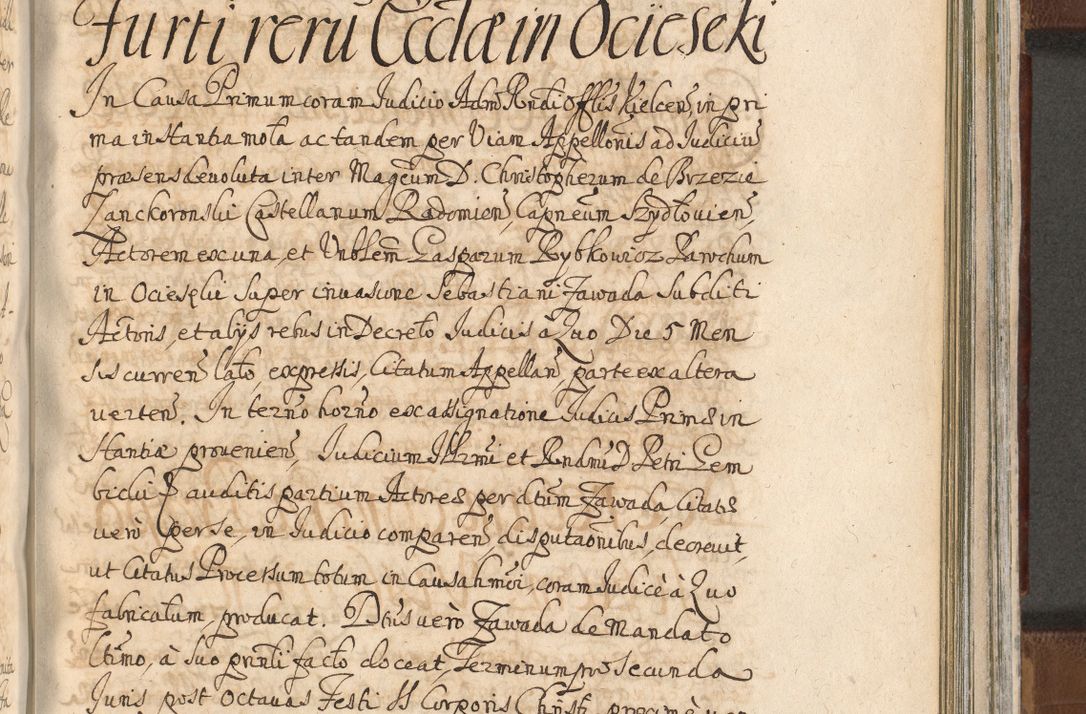 Furti rerũ Ecclæ in Ocieseki
In Causa Primum coram Judicio Adm Rndi Offlis Kielcen̄, in pri
ma instantia mota ac tandem per Viam Appellonis ad Judiciũ
præsens devoluta inter Magcum D. Christopherum de Brzezie
Zanckoronski Castellanum Radomien̄, Capneum Szydlovien̄,
Actorem ex una, et Vnblem Casparum Rybkowicz Parochum
in Ociesęki super invasione Sebastiani Zawada subditi
Actoris, et alÿs rebus in Decreto Judicis à Quo Die 5 Men
sis curren̄ lato, expressis, Citatum Appellan̄, parte ex altera
verten̄. In termo horno ex assignatione Judicis Primæ in
stantiæ provenien̄, Judicium Illrmi et Rndmi D Petri Gem
bicki auditis partium Actoreæ per dtum Zawada, Citatæ
verò per se, in Judicio comparen̄ disputaonibus, decrevit,
ut Citatus Processum totum in Causa hmoi, coram Judice à Quo
fabricatum, producat. Dtus verò Zawada de Mandato
Ctimo, à suo prnli facto doceat, Terminum pro secunda
Juris post octavas Festi SS Corporis Christi